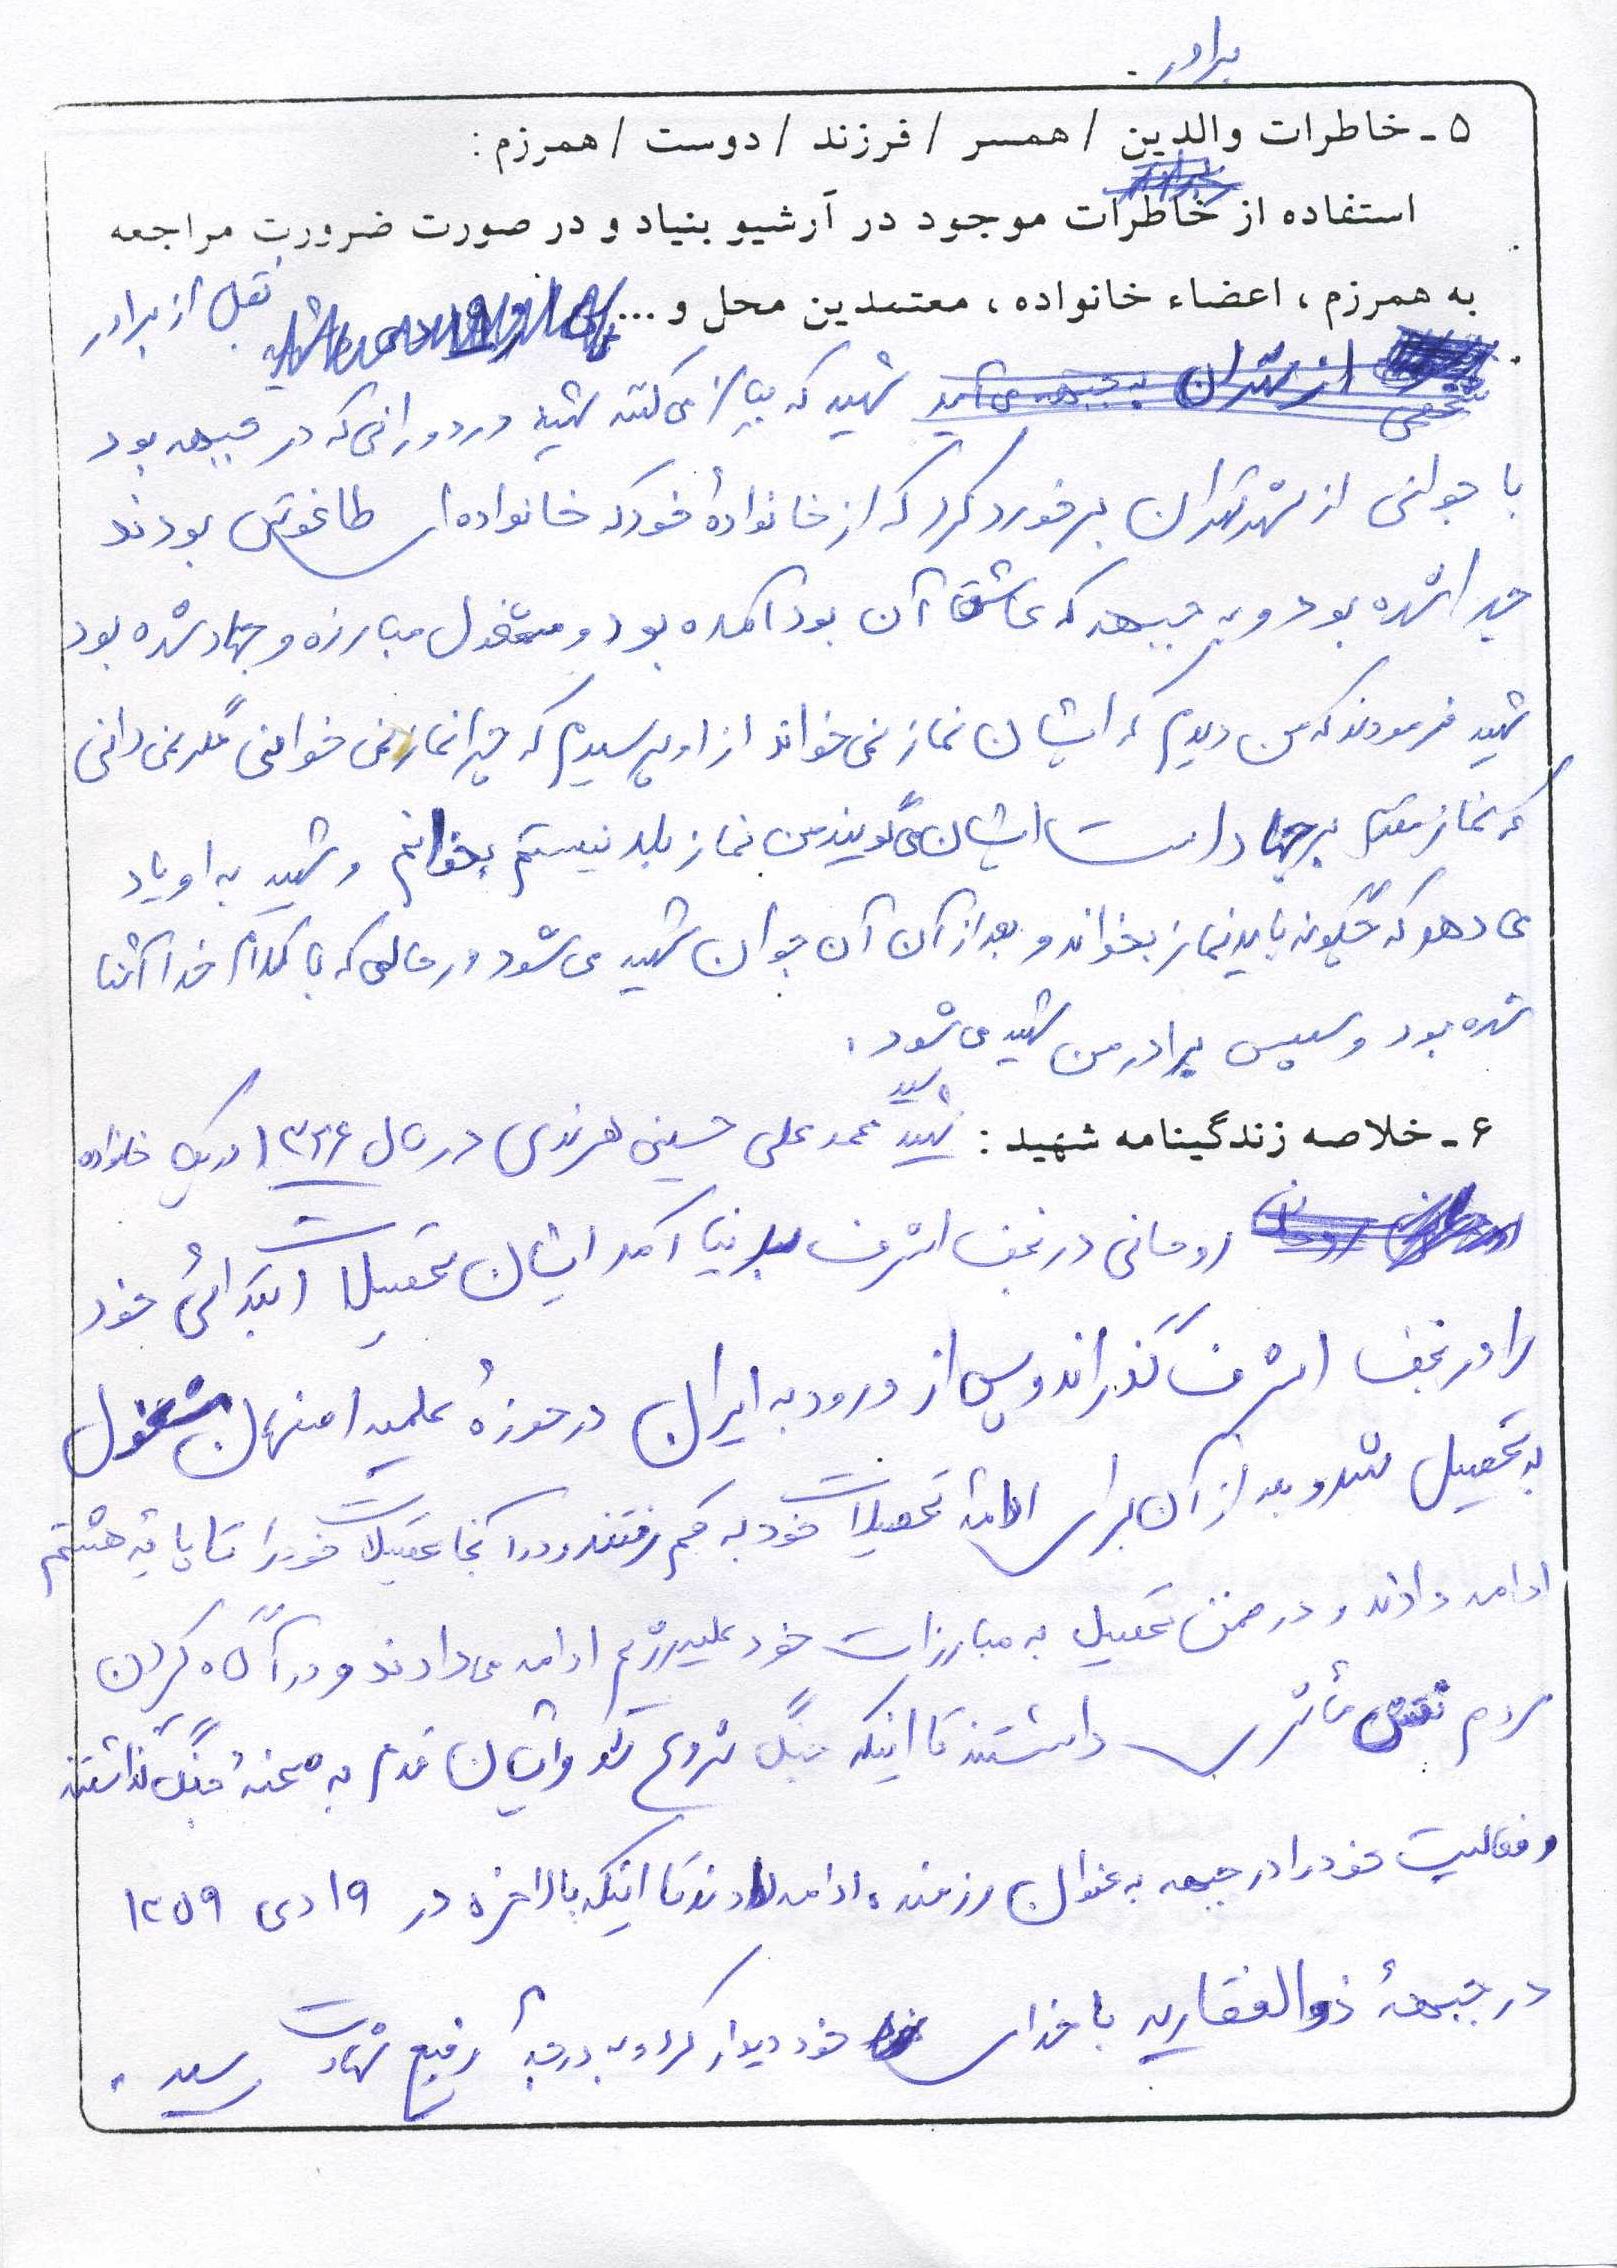 برادر
۵ - خاطرات والدین / همسر / فرزند / دوست / همرزم :
استفاده از خاطرات موجود در آرشیو بنیاد و در صورت ضرورت مراجعه
به همرزم ، اعضاء خانواده ، معتمدین محل و ... نقل از برادر
شهید که می گفتند شهید در دورانی که در جبهه بود
با جوانی از شهر تهران برخورد کرد که از خانوادهٔ خود که خانواده ای طاغوتی بودند
جدا شده بود و به جبهه که عاشق آن بود آمده بود و مشغول مبارزه و جهاد شده بود
شهید فرمودند که من دیدم که ایشان نماز نمی خواند از او پرسیدم که چرا نماز نمی خوانی مگر نمی دانی
که نماز مقدم بر جهاد است ایشان می گویند من نماز بلد نیستم بخوانم و شهید به او یاد
می دهد که چگونه باید نماز بخواند و بعد از آن آن جوان شهید می شود در حالی که با کلام خدا آشنا
شده بود و سپس برادر من شهید می شود .
۶ - خلاصه زندگینامه شهید : شهید سید محمد علی حسینی هرندی در سال ۱۳۲۶ در یک خانواده
روحانی در نجف اشرف بدنیا آمد ایشان تحصیلات ابتدائی خود
را در نجف اشرف گذراند و پس از ورود به ایران در حوزهٔ علمیه اصفهان مشغول
به تحصیل شد و بعد از آن برای ادامهٔ تحصیلات خود به قم رفتند و در آنجا تحصیلات خود را تا پایهٔ هشتم
ادامه دادند و در ضمن تحصیل به مبارزات خود علیه رژیم ادامه می دادند و در آگاه کردن
مردم نقش داشتند تا اینکه جنگ شروع شد و ایشان قدم به صحنهٔ جنگ گذاشتند
و فعالیت خود را در جبهه به عنوان رزمنده ادامه دادند تا اینکه بالاخره در ۱۹ دی ۱۳۵۹
در جبههٔ ذوالفقاریه با خدای خود دیدار کرد و به درجهٔ رفیع شهادت رسید .